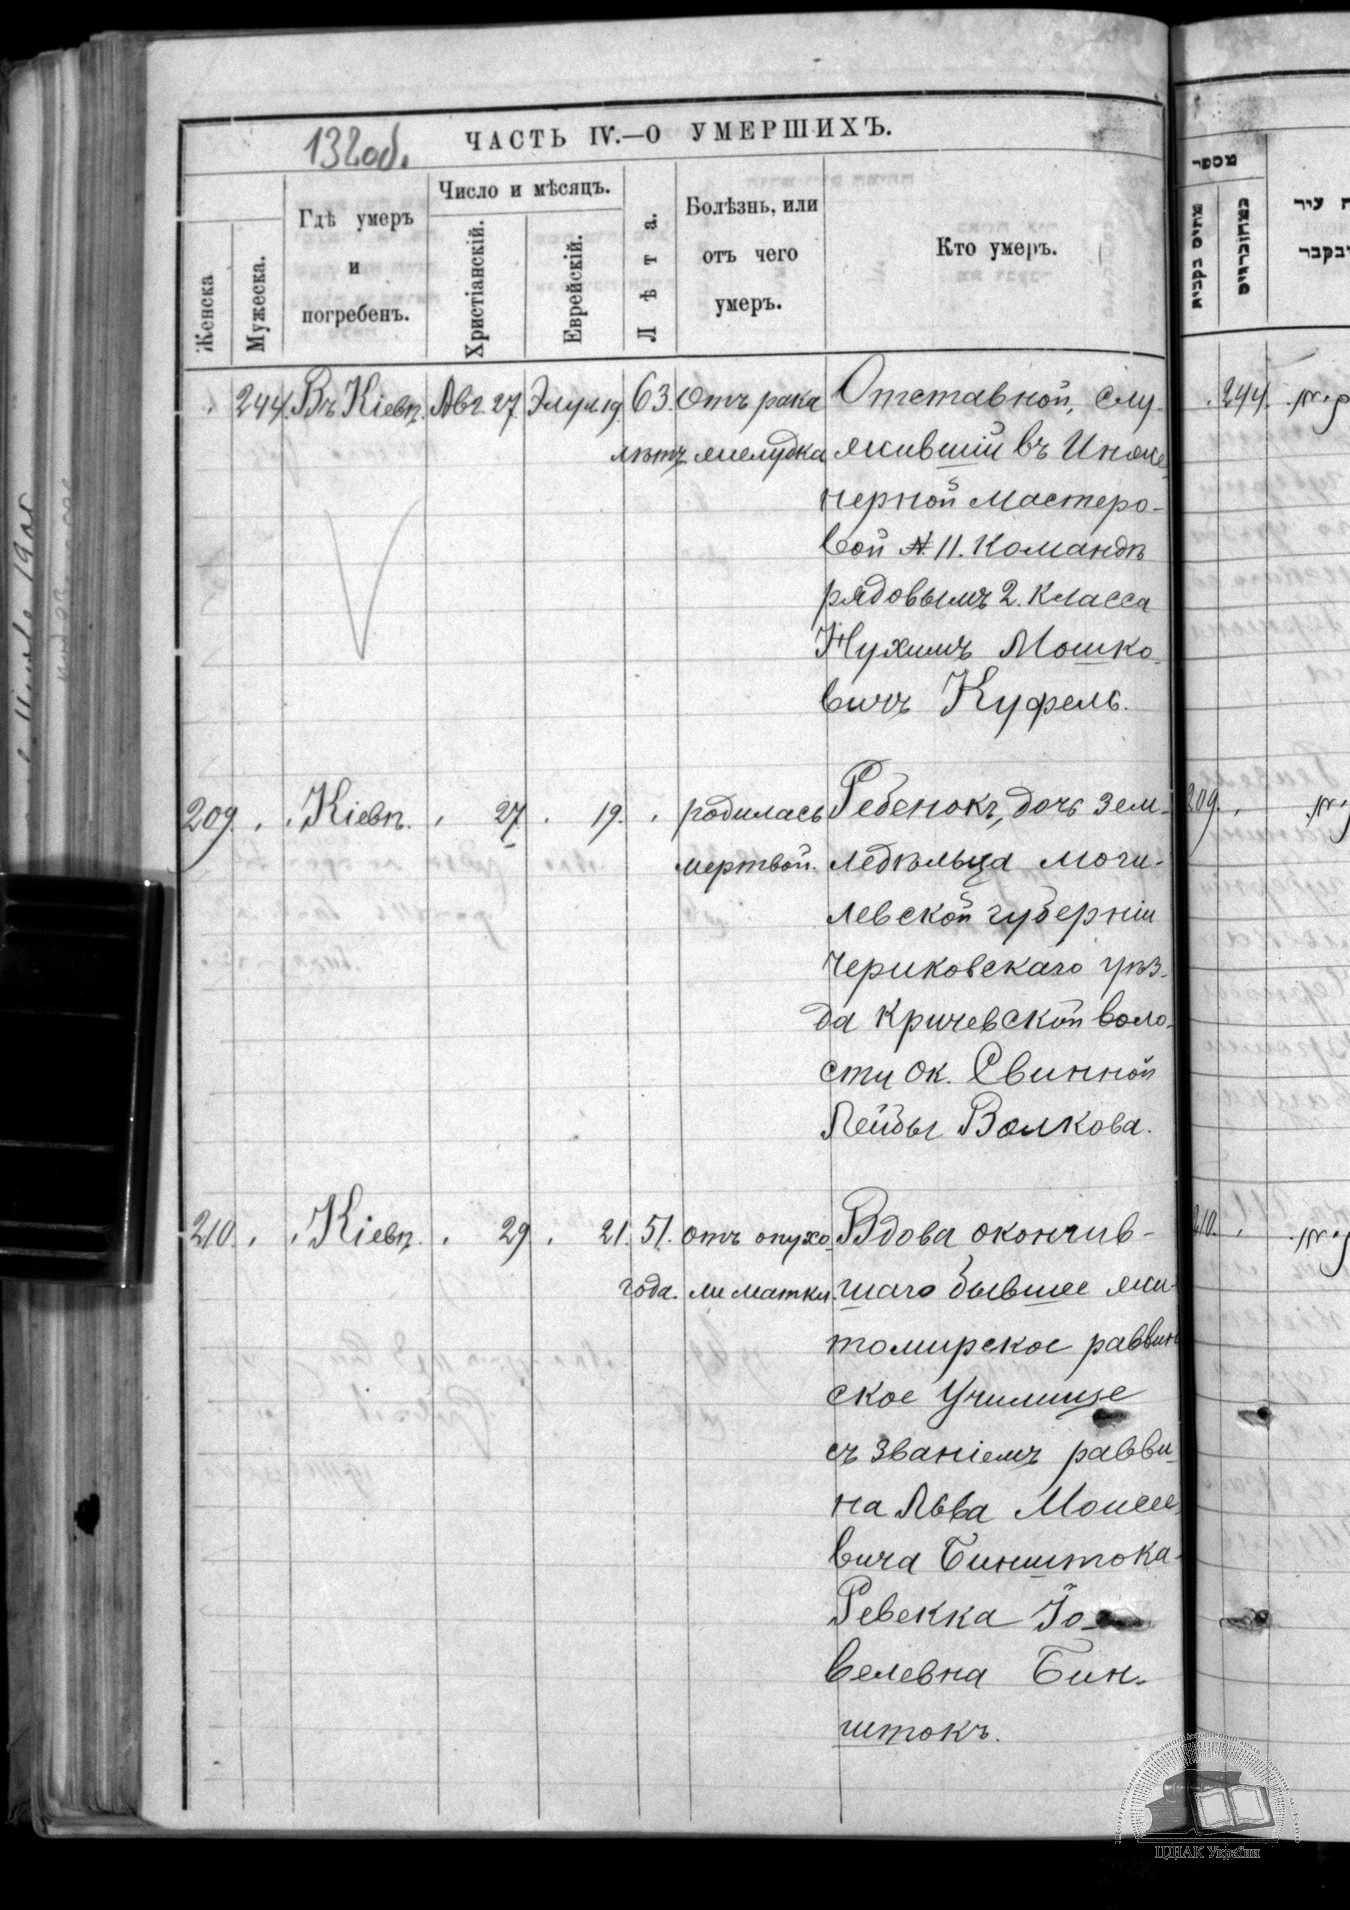 132 об.
ЧАСТЬ IV.—О УМЕРШИХЪ.
Женска
Мужеска.
Гдѣ умеръ
и
погребенъ.
Число и мѣсяцъ.
Христіанскій.
Еврейскій.
Лѣта.
Болѣзнь, или
отъ чего
умеръ.
Кто умеръ.
244. Въ Кіевѣ. Авг. 27. Элулъ 19. 63. Отъ рака Отставной, слу-
лѣтъ желудка жившій въ Инже-
нерной мастеро-
вой № 11. командѣ
рядовымъ 2. класса
Нухимъ Мошко-
вичъ Куфель.
209. Кіевѣ. 27. 19. родилась Ребенокъ, дочь зем-
мертвой. ледѣльца моги-
левской губерніи
Чериковскаго уѣз-
да Кричевской воло-
сти ок. Свинной
Лейбы Волкова.
210. Кіевѣ. 29. 21. 51. отъ опухо- Вдова окончив-
года. ли матки. шаго бывшее жи-
томирское раввин
ское Училище
съ званіемъ равви-
на Льва Моисее-
вича Бинштока-
Ревекка Іо-
велевна Бин-
штокъ.
מספר
244.
209.
210.
ЦДІАК України